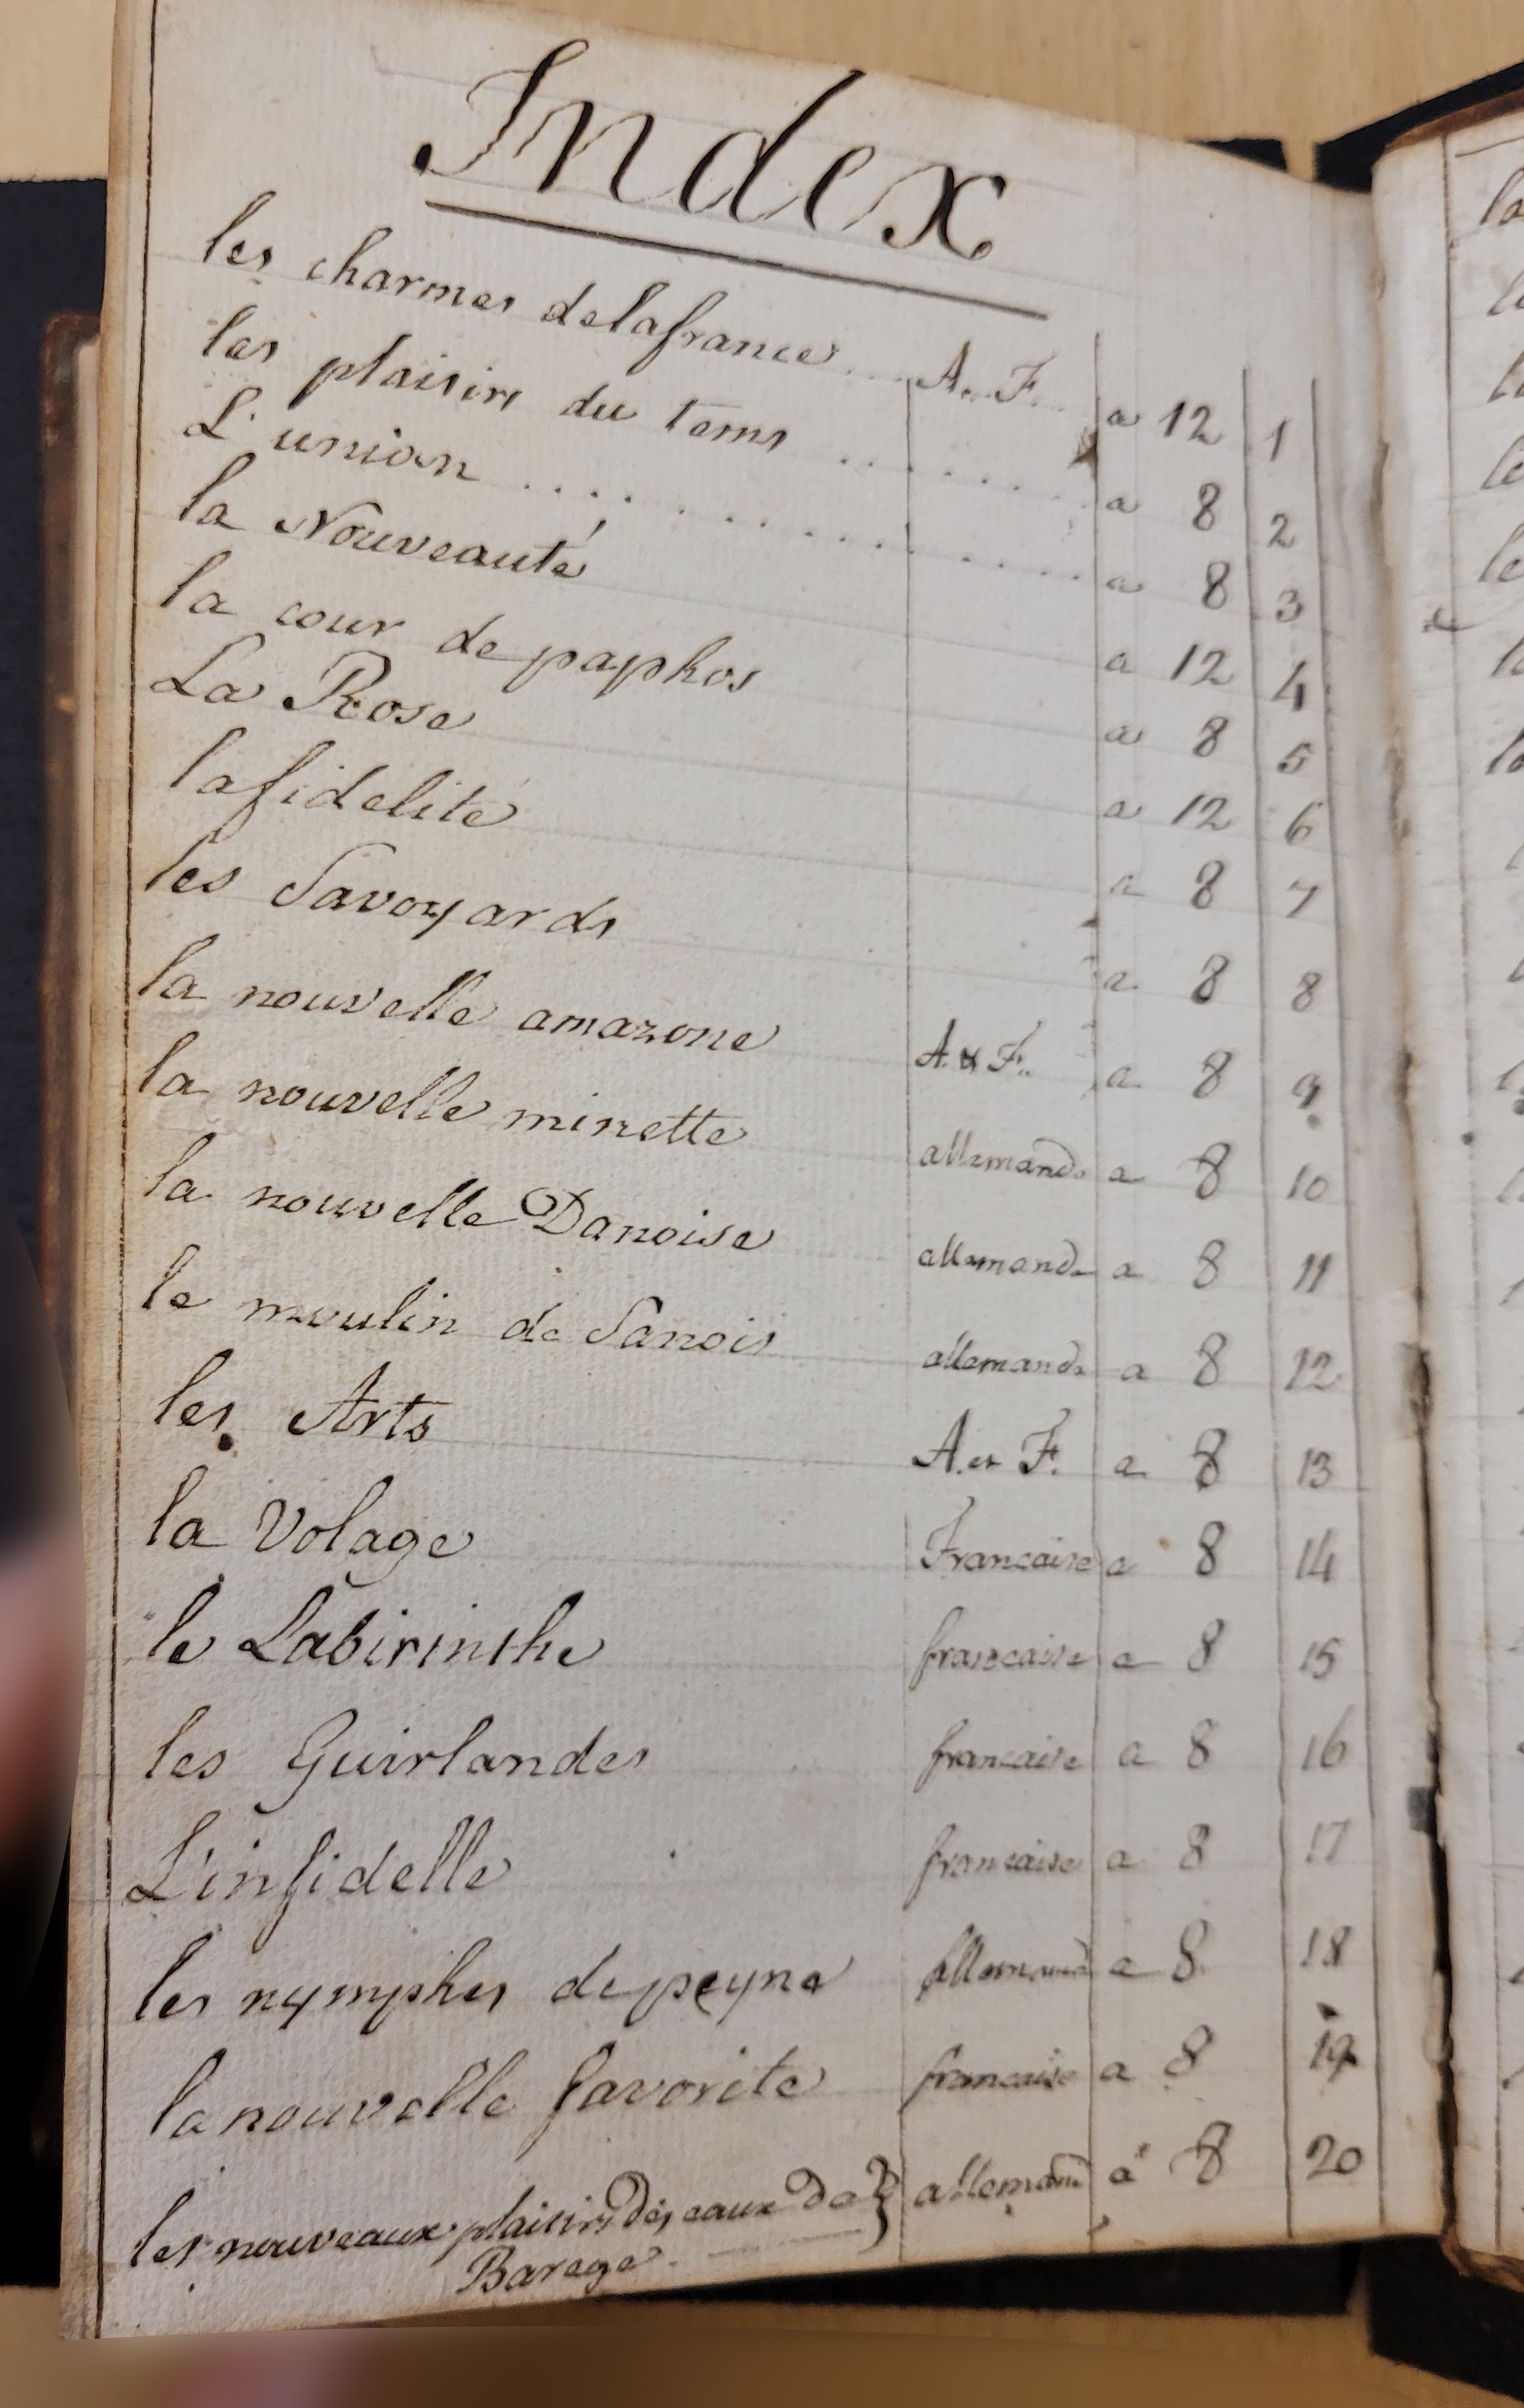 Index
les charmes delafrance .... A. F. a 12 1
les plaisirs du tems ........ a 8 2
L'union ............. a 8 3
la Nouveauté a 12 4
la cour de paphos a 8 5
La Rose a 12 6
lafidelité a 8 7
les Savoyards a 8 8
la nouvelle amazone A. & F. a 8 9
la nouvelle minette allemande a 8 10
la nouvelle Danoise allemande a 8 11
le moulin de Sanois allemande a 8 12
les Arts A. et F. a 8 13
la Volage Francaise a 8 14
le Labirinthe francaise a 8 15
les Guirlandes francaise a 8 16
L'infidelle francaise a 8 17
les nymphes depeyne allemand a 8 18
lanouvelle favorite francaise a 8 19
les nouveaux plaisirs des eaux de } allemand à 8 20
Barege